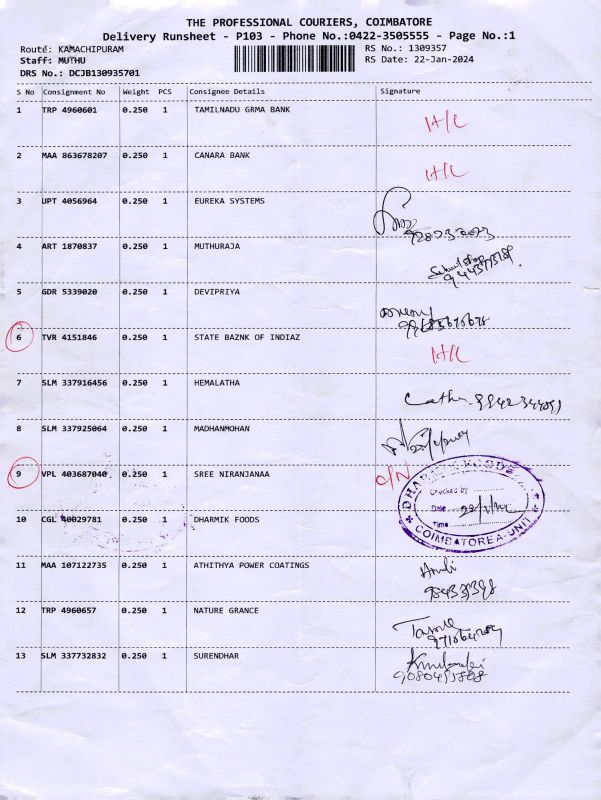 THE PROFESSIONAL COURIERS, COIMBATORE
Delivery Runsheet - P103 - Phone No.:0422-3505555 - Page No.:1
Route: KAMACHIPURAM RS No.: 1309357
Staff: MUTHU RS Date: 22-Jan-2024
DRS No.: DCJB130935701
S No Consignment No Weight PCS Consignee Details Signature
1 TRP 4960601 0.250 1 TAMILNADU GRMA BANK
H/C
2 MAA 863678207 0.250 1 CANARA BANK
H/C
3 UPT 4056964 0.250 1 EUREKA SYSTEMS
4 ART 1870837 0.250 1 MUTHURAJA
5 GDR 5339020 0.250 1 DEVIPRIYA
6 TVR 4151846 0.250 1 STATE BAZNK OF INDIAZ
H/C
7 SLM 337916456 0.250 1 HEMALATHA
8 SLM 337925064 0.250 1 MADHANMOHAN
9 VPL 403687040 0.250 1 SREE NIRANJANAA
C/N
10 CGL 40029781 0.250 1 DHARMIK FOODS
DHARMIK FOODS
Checked by
Date
Time
COIMBATORE A-UNIT
11 MAA 107122735 0.250 1 ATHITHYA POWER COATINGS
12 TRP 4960657 0.250 1 NATURE GRANCE
13 SLM 337732832 0.250 1 SURENDHAR